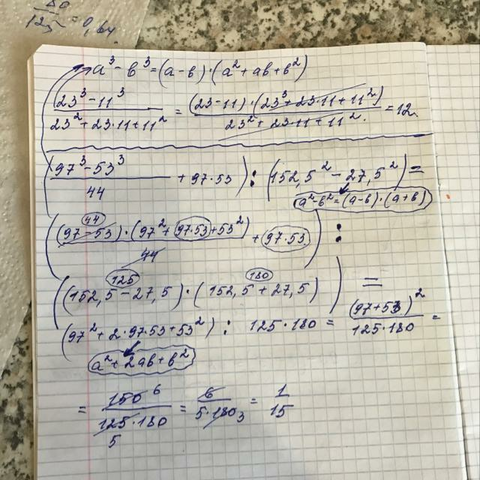 20/125 = 0,64
a³ - b³ = (a-b)·(a² + ab + b²)
(23³ - 11³)/(23² + 23·11 + 11²) = ((23-11)·(23³ + 23·11 + 11²))/(23² + 23·11 + 11²) = 12
((97³ - 53³)/44 + 97·53) : (152,5² - 27,5²) =
a² - b² = (a-b)·(a+b)
44
((97-53)·(97² + 97·53 + 53²)/44 + 97·53) :
125 180
((152,5 - 27,5)·(152,5 + 27,5)) =
(97² + 2·97·53 + 53²) : 125·180 = (97+53)²/(125·180) =
a² + 2ab + b²
= 150 6/(125·180) = 6/(5·180) = 1/15
5 3